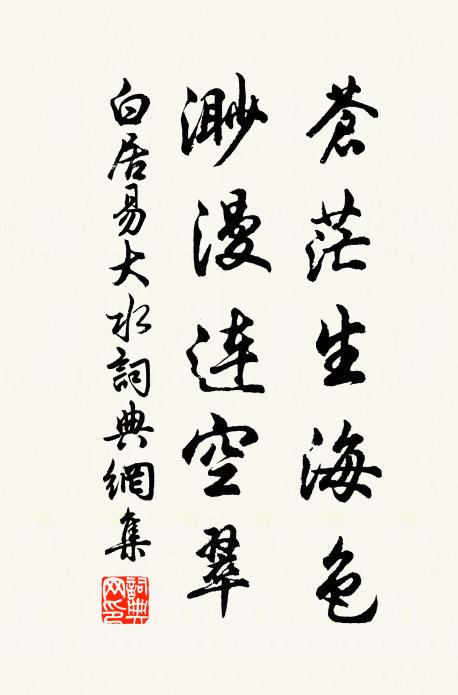 蒼茫生海色
渺漫連空翠
白居易大水詞典網集
詞典網印